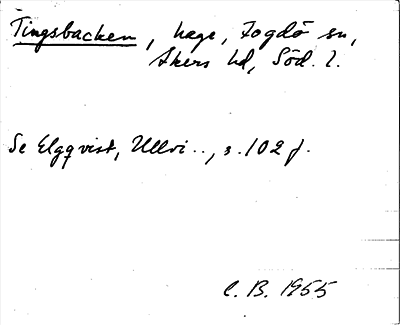 Tingsbacken, hage, Fogdö sn,
Åkers hd, Söd. l.
Se Elgqvist, Ullvi.., s. 102 f.
C. B. 1955